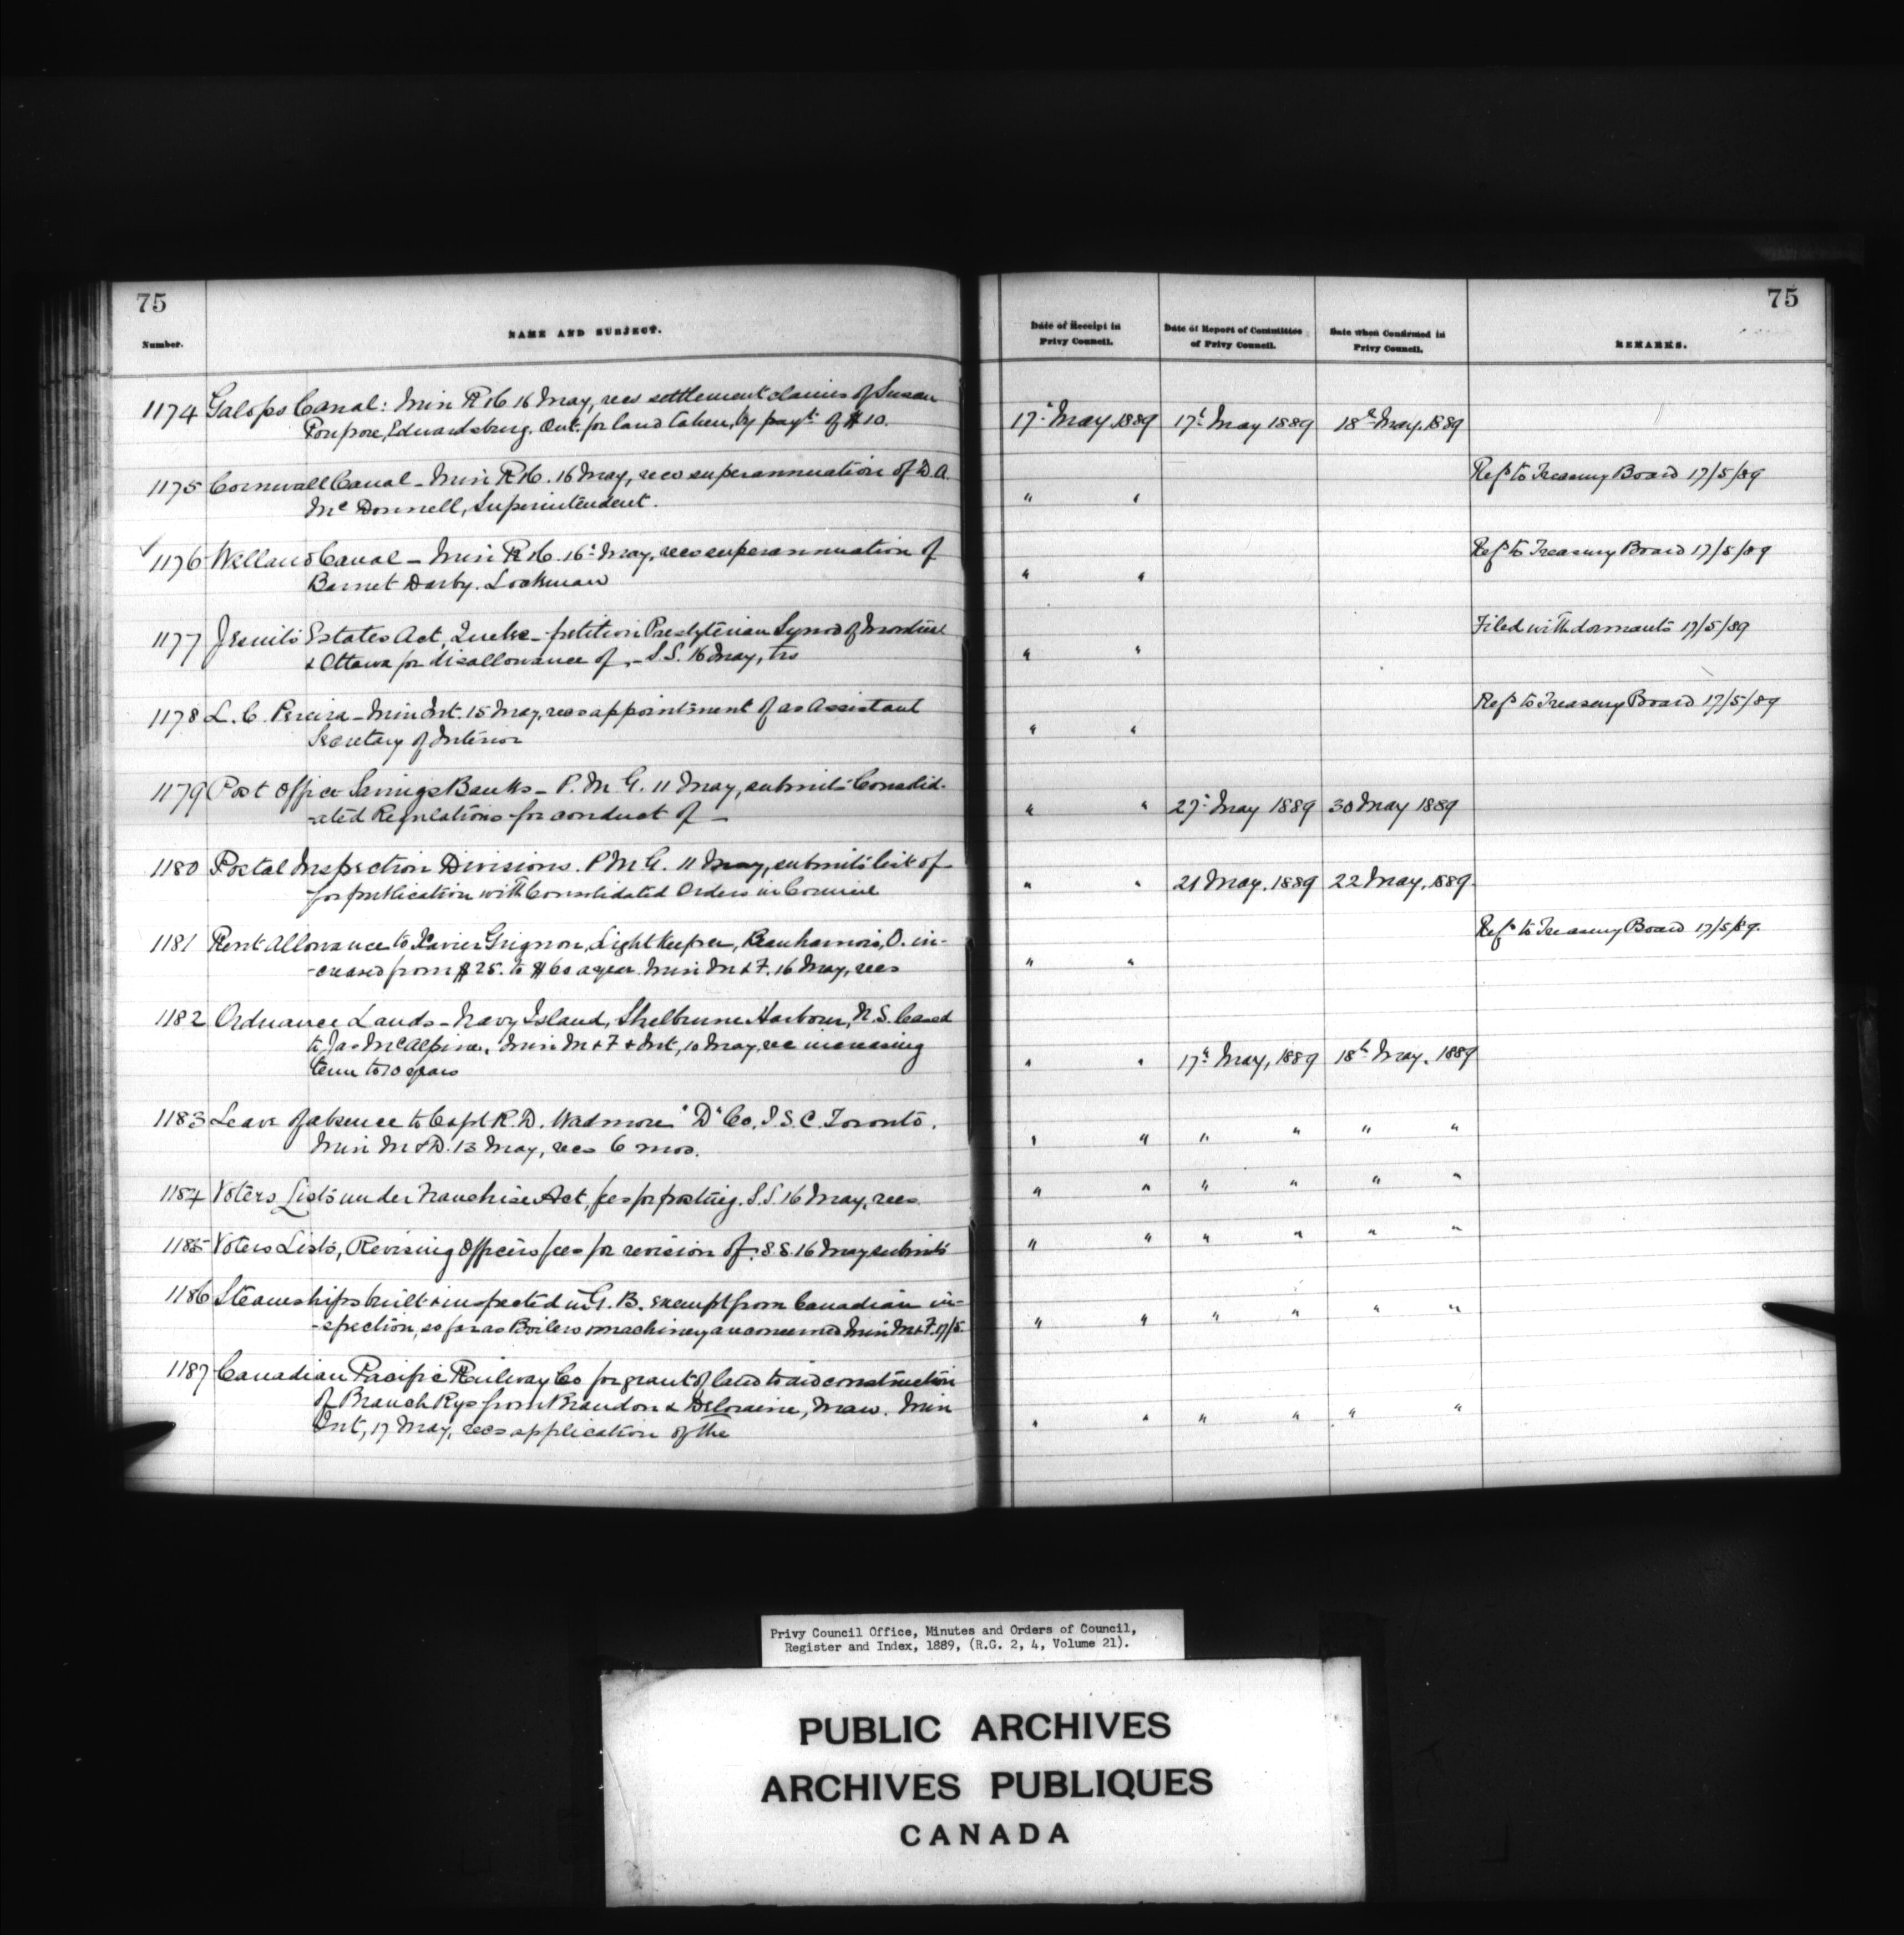 75
75
Number.
NAME AND SUBJECT.
Date of Receipt in Privy Council.
Date of Report of Committee of Privy Council.
Date when Confirmed in Privy Council.
REMARKS.
1174 Galops Canal: Min R & C 16 May, recs settlement claims of Susan
Poupore, Edwardsburg. Ont. for land taken, by payt. of $10.
17 May 1889 17t May 1889 18th May. 1889
1175 Cornwall Canal - Min R & C. 16 May, recs superannuation of D. A.
Mc Donnell, Superintendent.
" " Refd to Treasury Board 17/5/89
1176 Welland Canal - Min R & C. 16t May, recs superannuation of
Barnet Darby. Lockman
" " Refd to Treasury Board 17/5/89
1177 Jesuits Estates Act, Quebec - petition Presbyterian Synod of Montreal
& Ottawa for disallowance of - S.S. 16 May, trs
" " Filed with dormants 17/5/89
1178 L. C. Pereira - Min Int. 15 May, recs appointment of as Assistant
Secretary of Interior
" " Refd to Treasury Board 17/5/89
1179 Post Office Savings Banks - P. M. G. 11 May, submits Consolid-
-ated Regulations for conduct of -
" " 27t May 1889 30 May 1889
1180 Postal Inspection Divisions. P M G. 11 May, submits list of
for publication with Consolidated Orders in Council
" " 21 May. 1889 22 May, 1889.
1181 Rent Allowance to Xavier Grignon, Light Keeper, Beauharnois, Q. in-
-creased from $25. to $60 a year. Min M & F. 16 May, recs
" " Refd to Treasury Board 17/5/89.
1182 Ordnance Lands - Navy Island, Shelburne Harbour, N.S. leased
to Jas McAlpine, Min M & F & Int, 10 May, rec increasing
term to 10 years
" " 17th May, 1889 18th May. 1889
1183 Leave of absence to Capt R. D. Wadmore "D" Co. I. S. C. Toronto.
Min M & D. 13 May, recs 6 mos.
" " " " " "
1184 Voters Lists under Franchise Act, fees for posting. S.S. 16 May, recs.
" " " " " "
1185 Voters Lists, Revising Officers fees for revision of. S.S. 16 May submits
" " " " " "
1186 Steamships built & inspected in G. B. exempt from Canadian in-
-spection, so far as Boilers & machinery are concerned Min M & F. 17/5.
" " " " " "
1187 Canadian Pacific Railway Co for grant of land to aid construction
of Branch Rys from Brandon & Deloraine, Man. Min
Int, 17 May, recs application of the
" " " " " "
Privy Council Office, Minutes and Orders of Council,
Register and Index, 1889, (R.G. 2, 4, Volume 21).
PUBLIC ARCHIVES
ARCHIVES PUBLIQUES
CANADA